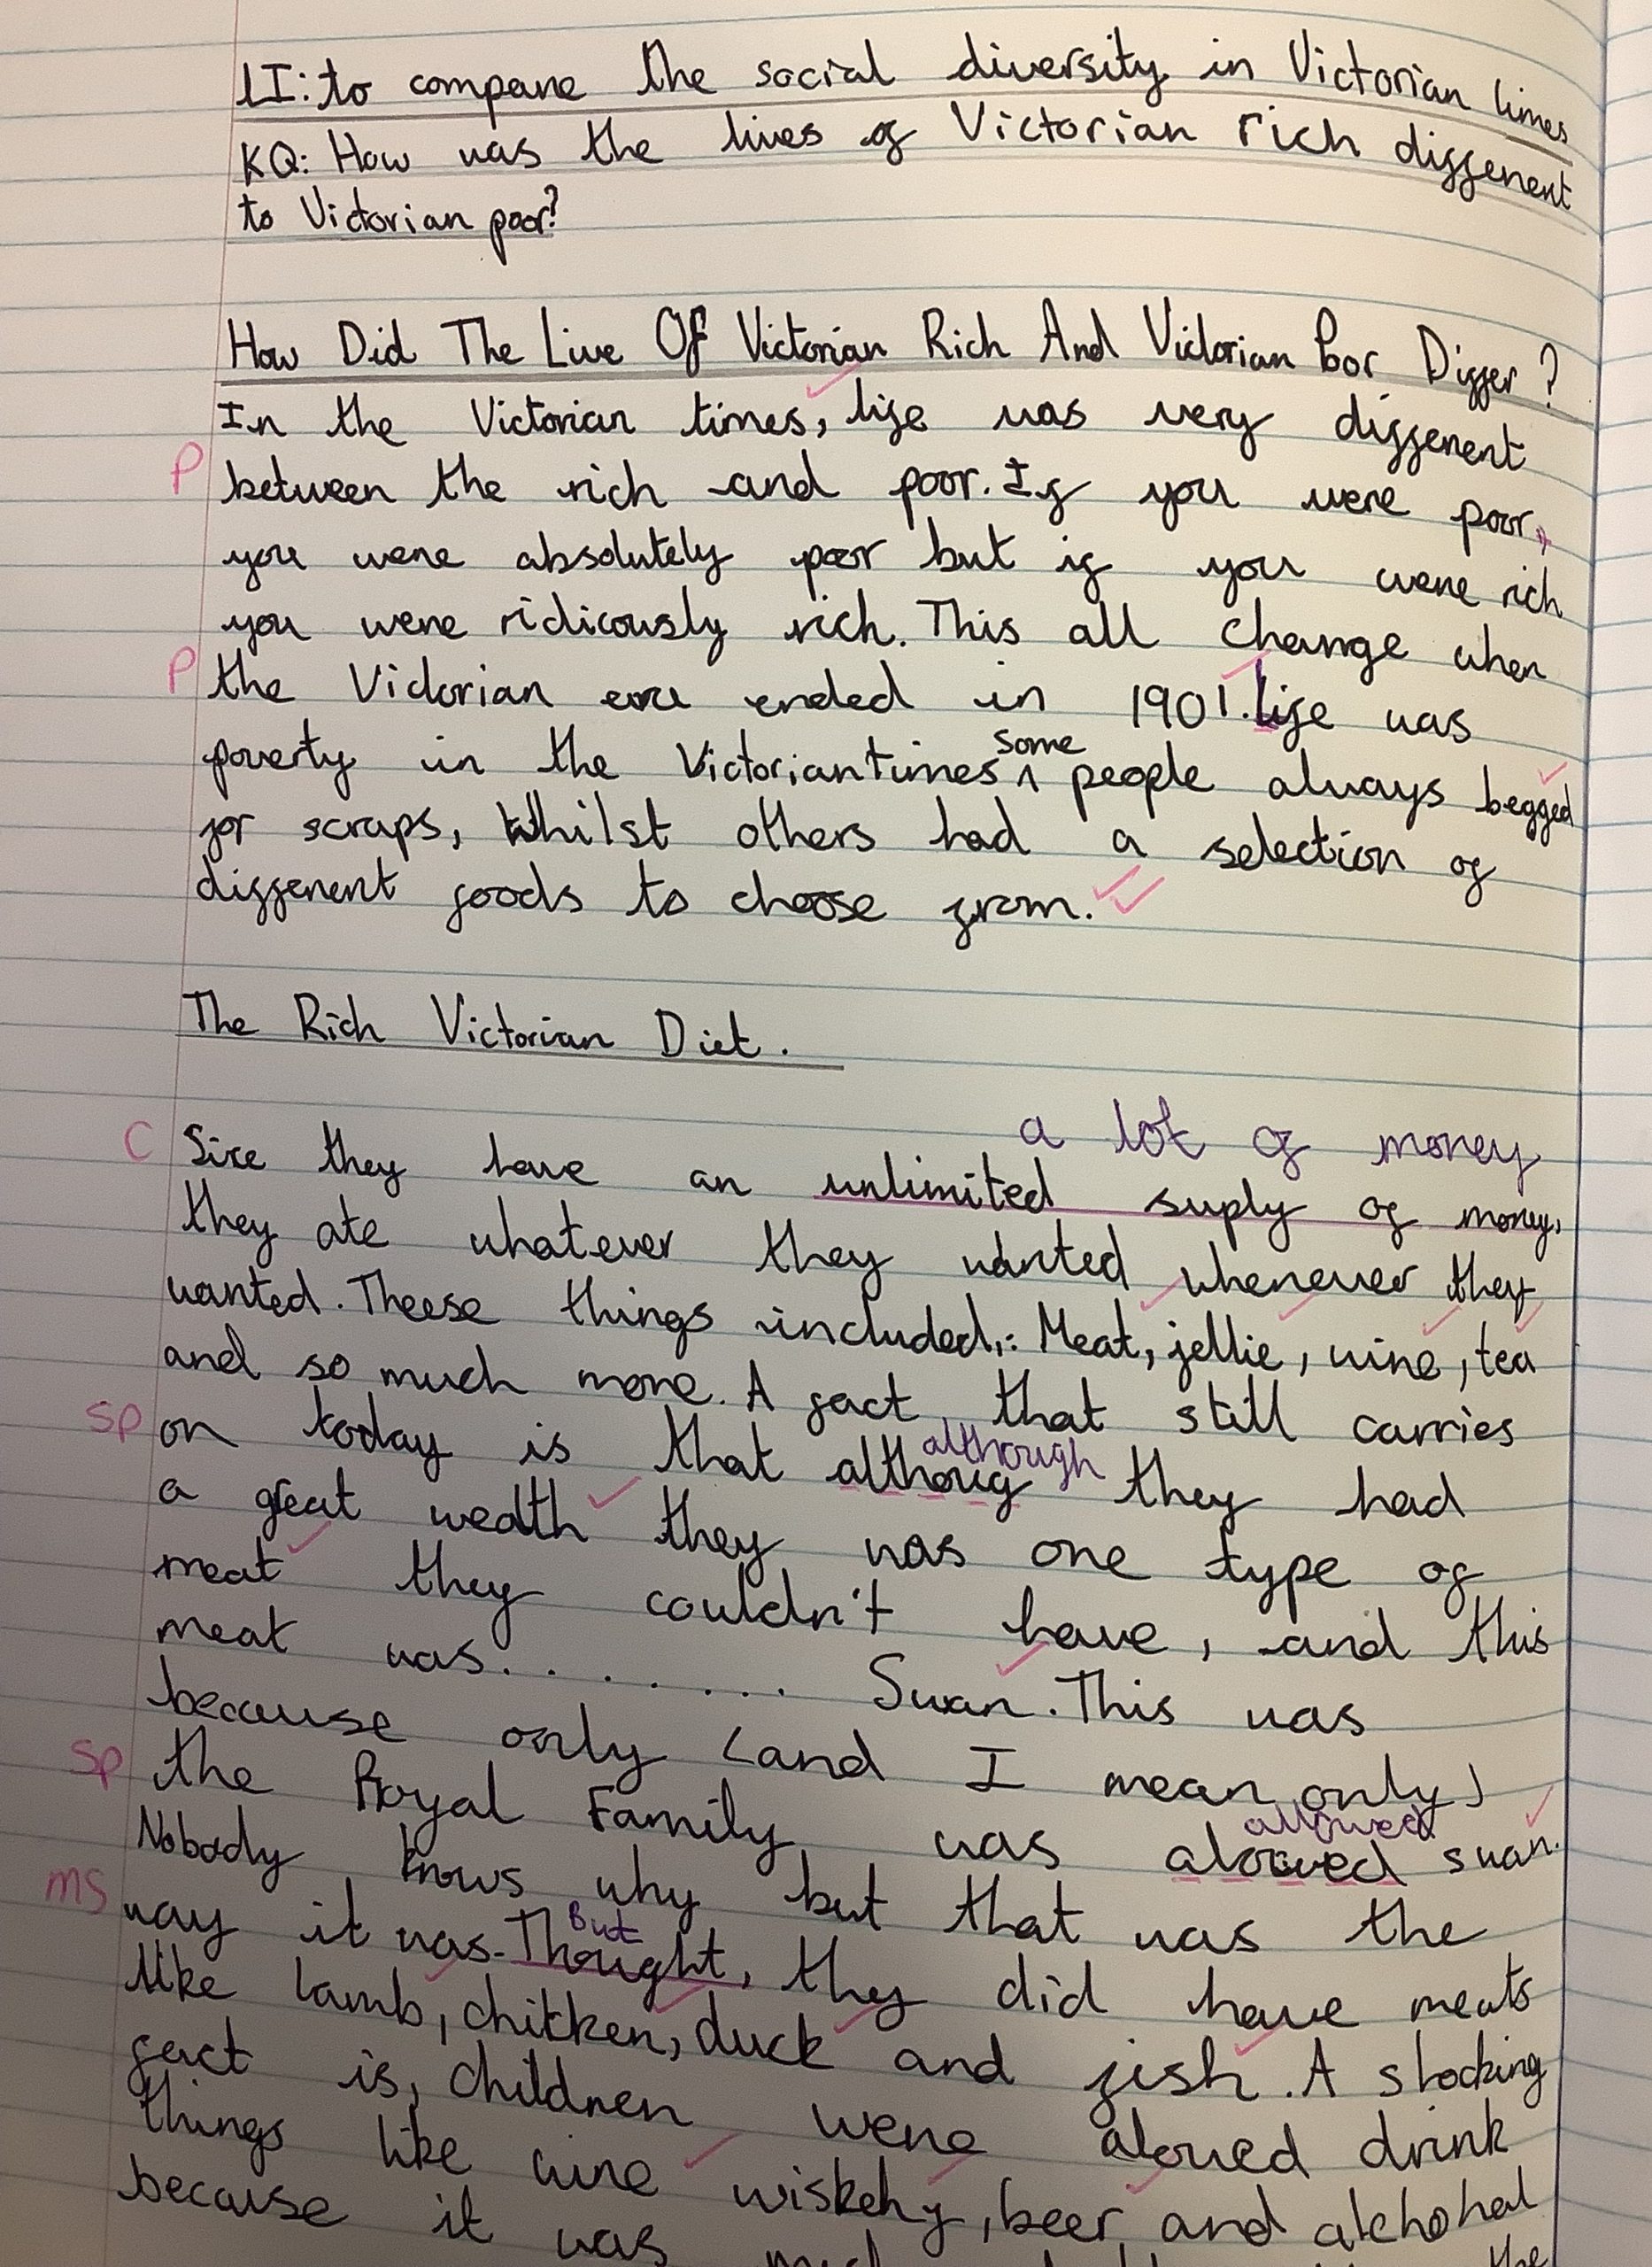 LI: to compare the social diversity in Victorian times
KQ: How was the lives of Victorian rich different
to Victorian poor?
How Did The Live Of Victorian Rich And Victorian Poor Differ?
In the Victorian times, life was very different
P between the rich and poor. If you were poor,
you were absolutely poor but if you were rich
you were ridicously rich. This all change when
P the Victorian era ended in 1901. Life was
some
poverty in the Victorian times ^ people always begged
for scraps, Whilst others had a selection of
different foods to choose from.
The Rich Victorian Diet.
a lot of money
C Sice they have an unlimited suply of money,
they ate whatever they wanted whenever they
wanted. Theese things included,: Meat, jellie, wine, tea
and so much more. A fact that still carries
although
sp on today is that althoug they had
a great wealth they was one type of
meat they couldn't have, and this
meat was......... Swan. This was
because only (and I mean only)
sp the Royal Family was alowed swan.
allowed
Nobody knows why but that was the
But
ms way it was. Thought, they did have meats
like lamb, chitken, duck and fish. A shocking
fact is, children were aloued drink
things like wine wiskehy, beer and alchohal
because it was
the